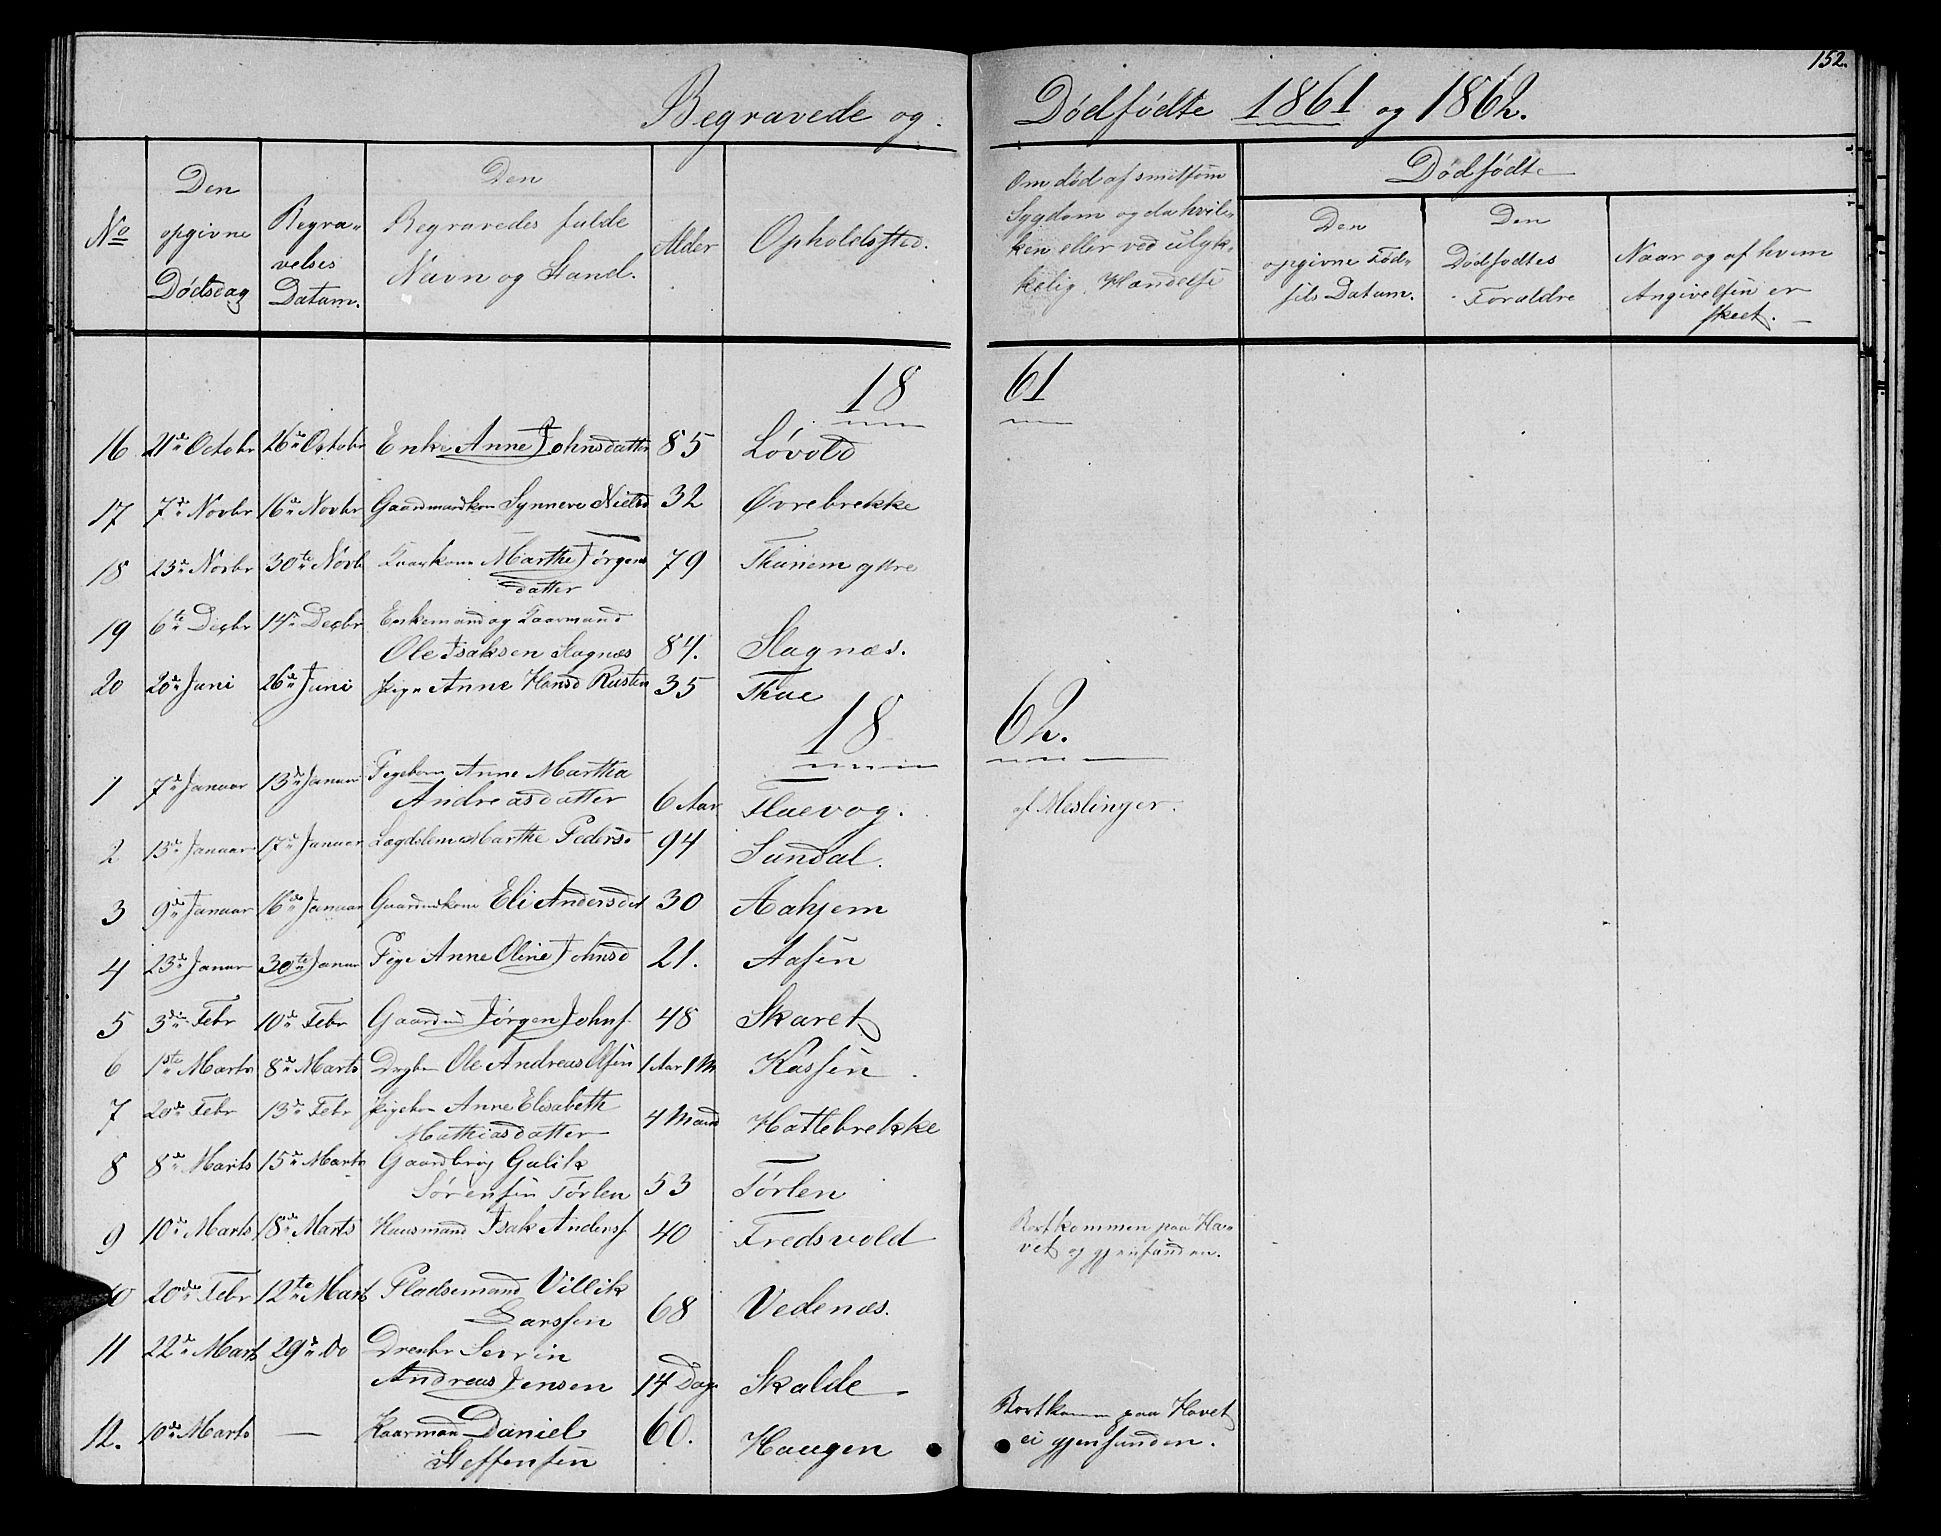 152.
Begravede og Dødfødte 1861 og 1862.
No
Den opgivne Dødsdag
Begravelses Datum.
Den Begravedes fulde Navn og Stand.
Alder
Opholdssted.
Om död af smitsom
Sygdom og da hvil-
ken eller ved ulyk-
kelig Hændelse
Dødfødte
Den opgivne Fød-
sels Datum.
Den Dødfødtes Forældre
Naar og af hvem
Angivelsen er
skeet.
1861
16 21de Octobr 26de Octobr Enke Anne Johnsdatter 85 Løvold
17 7de Novbr 16de Novbr Gaardmandkone Synneve Nielsd 32 Øvrebrekke
18 23de Novbr 30te Novb Kaarkone Marthe Jørgens
datter 79 Thunem ytre
19 6te Decbr 14de Decbr Enkemand og Kaarmand
Ole Isaksen Slagnæs 84. Slagnæs.
20 20de Juni 26de Juni Pige Anne Hansd Rusten 35 Thue
1862.
1 7de Januar 13de Januar Pigebarn Anne Martha
Andreasdatter 6 Aar Flaevog. af Meslinger.
2 13de Januar 17de Januar Lægdslem Marthe Pedersd 94 Sundal.
3 9de Januar 16de Januar Gaardmdkone Eli Andersdat 30 Aahjem
4 23de Januar 30te Januar Pige Anne Oline Johnsd 21. Aasen
5 3die Febr 10de Febr Gaardmd Jørgen Johns. 48 Skaret
6 1ste Marts 8de Marts Drgbn Ole Andreas Olsen 1 Aar 1 M Kassen
7 20de Febr 13de Febr Pigebarn Anne Elisabeth
Mathiasdatter 4 Maand Hatlebrekke
8 8de Marts 15de Marts Gaardbrug Gulik
Sørensen Tørlen 53 Tørlen
9 10de Marts 18de Marts Huusmand Isak Anders. 40 Fredsvold Bortkommen paa Ha-
vet og gjenfunden.
10 20de Febr 12te Marts Pladsemand Villik
Larssen 68 Vedenæs.
11 22de Marts 29de Do Drenbr Severin
Andreas Jensen 14 Dag. Skalde
12. 10de Marts — Kaarmand Daniel
Steffensen 60. Haugen Bortkommen paa Havet
ei gjenfunden.